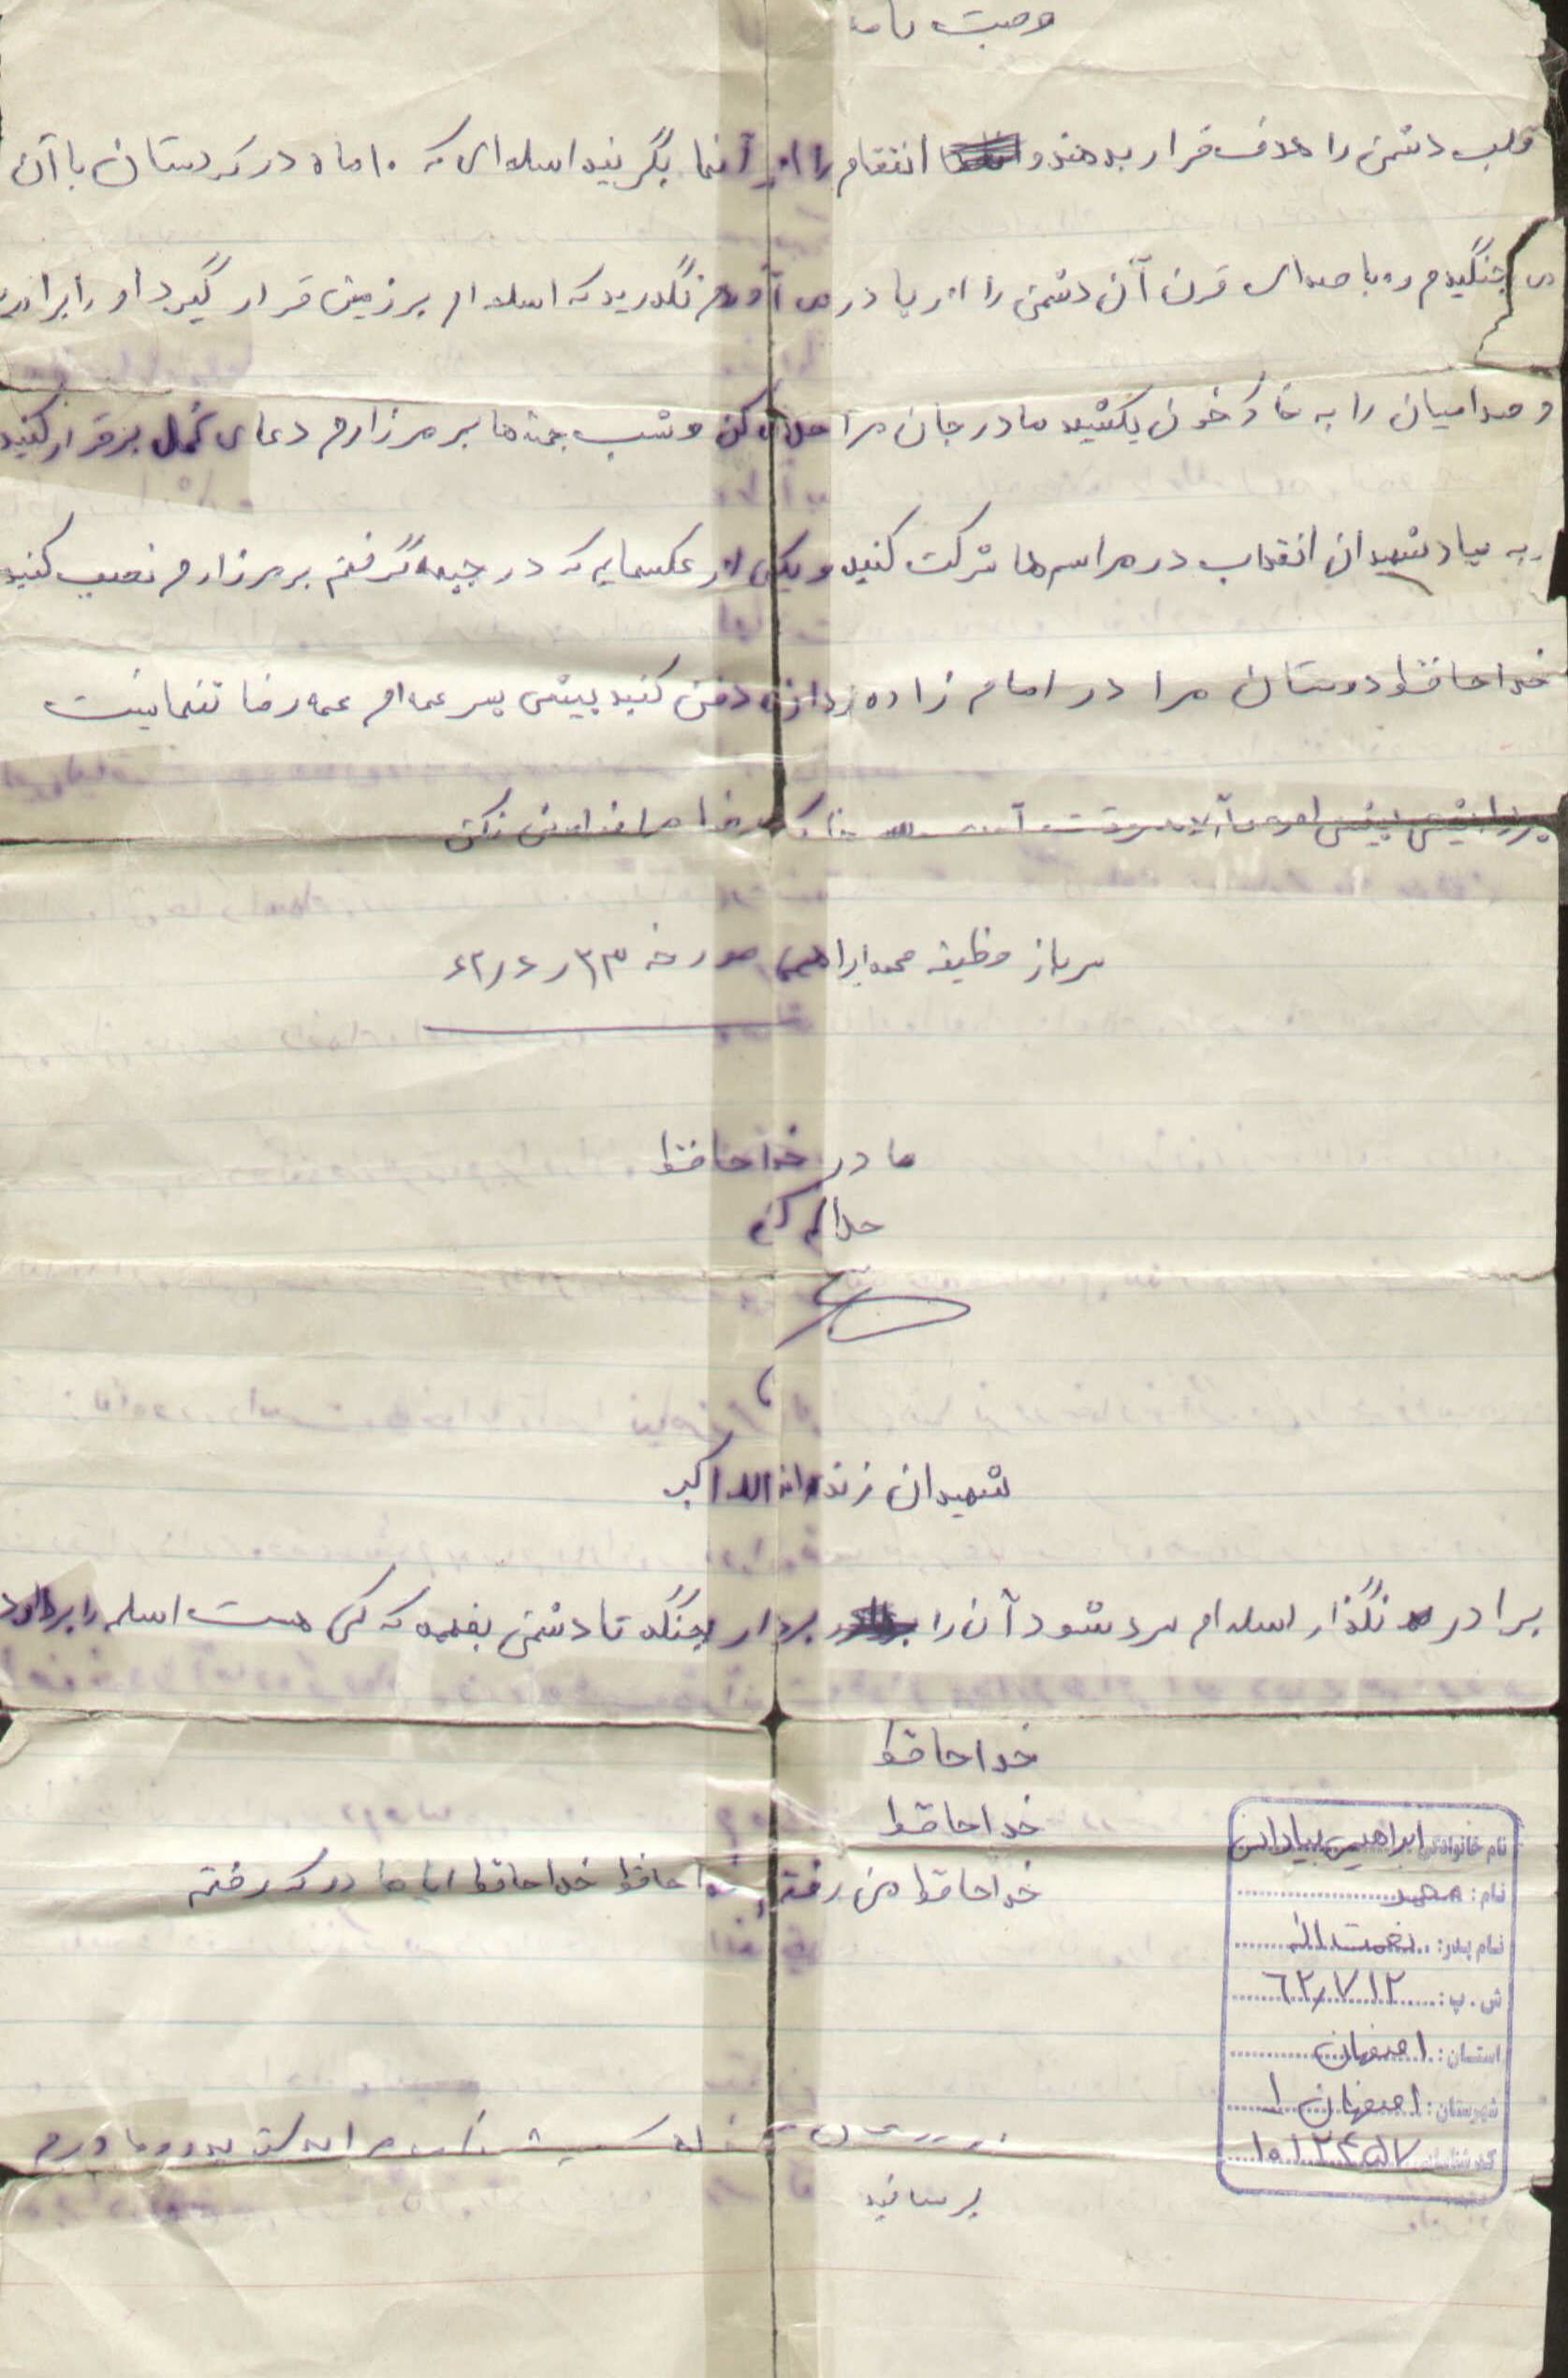 وصیت نامه
قلب دشمن را هدف قرار بدهند و انتقام را از آنها بگیرنید اسلحه ای که ۱۰ ماه در کردستان با آن
می جنگیدم و با صدای قرن آن دشمن را از پا در می آوردم نگذرید که اسلحه ام بر زمین قرار گیرد او را بردارید
و صدامیان را به خاک خون بکشید مادر جان مرا حلال کن و شب جمعه ها بر مزارم دعای کمیل برقرار کنید
به یاد شهیدان انقلاب در مراسم ها شرکت کنید و یکی از عکسهایی که در جبهه گرفتم بر مزارم نصب کنید
خداحافظ دوستان مرا در امام زاده دفن کنید پیش پسر عمه ام عمه رضا تنهانیست
خدا مرا فراموش نکن
سرباز وظیفه محمد ابراهیمی مورخه ۶۲٫۶٫۲۳
مادر خداحافظ
حلالم کن
شهیدان زنده اند الله اکبر
برادر نگذار اسلحه ام سرد شود آن را بردار بجنگ تا دشمن بفهمد که کسی هست اسلحه را بردارد
خداحافظ
خداحافظ
خداحافظ من رفتم خداحافظ خداحافظ ای مادر که رفتم
مرا به دست پدر و مادرم
برسانید
نام خانوادگی: ابراهیمی بیادانی
نام: محمد
نام پدر: نعمت اله
ش.پ: ٦٢٫٧١٢
استان: اصفهان
شهرستان: اصفهان ۱
کد شناسایی: ۱۰۱۲۴۵۷